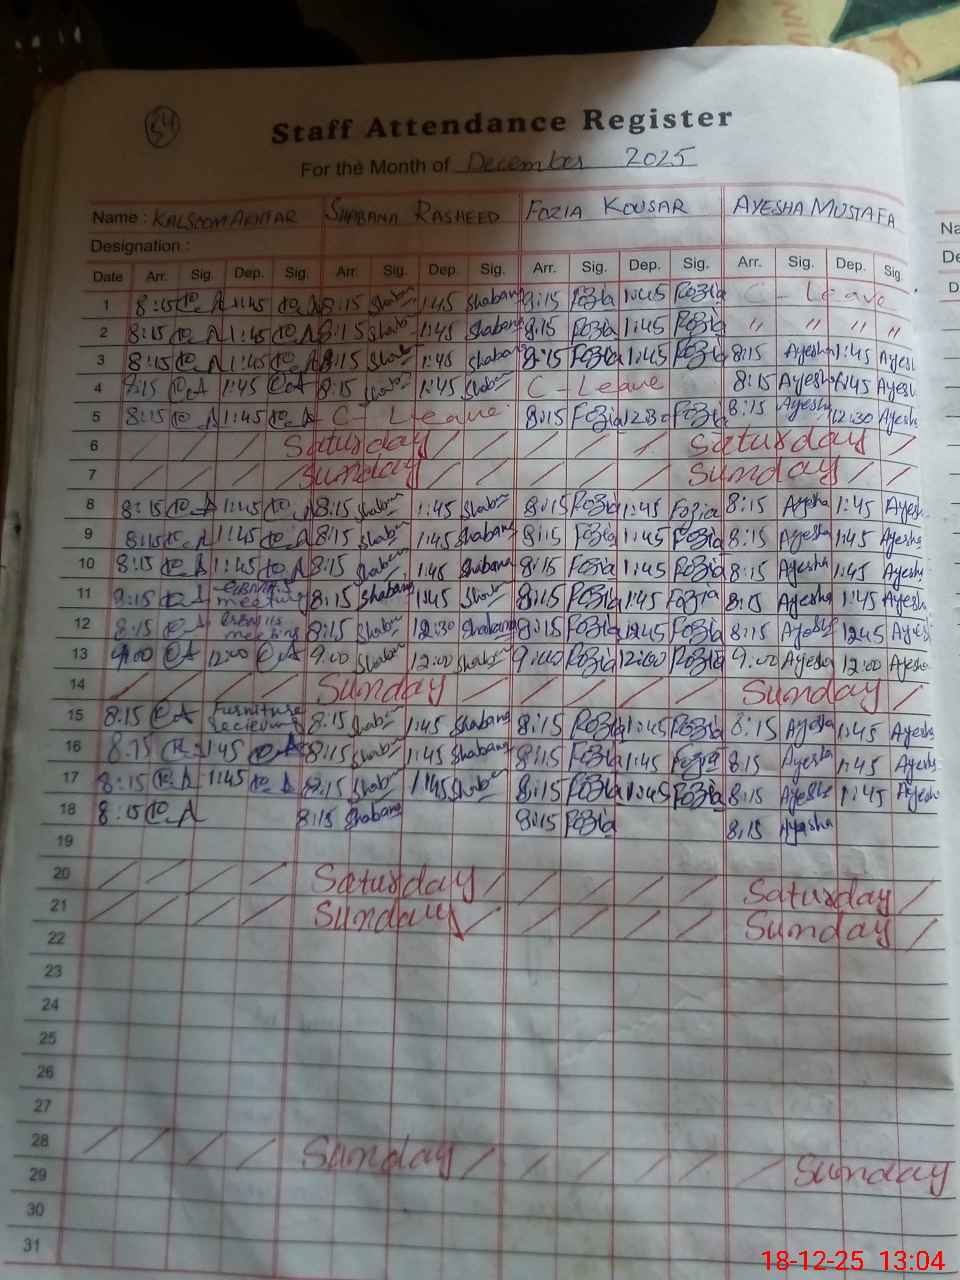 54
Staff Attendance Register
For the Month of December 2025
Name : KALSOOM AKHTAR SHABANA RASHEED FOZIA KOUSAR AYESHA MUSTAFA
Designation :
Date Arr. Sig. Dep. Sig. Arr. Sig. Dep. Sig. Arr. Sig. Dep. Sig. Arr. Sig. Dep. Sig.
1 8:15 K.A 1:45 K.A 8:15 Shaban 1:45 Shabana 8:15 Fozia 1:45 Fozia C - Leave
2 8:15 K.A 1:45 K.A 8:15 Shaban 1:45 Shabana 8:15 Fozia 1:45 Fozia " " " "
3 8:15 K.A 1:45 K.A 8:15 Shaban 1:45 Shabana 8:15 Fozia 1:45 Fozia 8:15 Ayesha 1:45 Ayesha
4 8:15 K.A 1:45 K.A 8:15 Shaban 1:45 Shaban C - Leave 8:15 Ayesha 1:45 Ayesha
5 8:15 K.A 1:45 K.A C - Leave 8:15 Fozia 12:30 Fozia 8:15 Ayesha 12:30 Ayesha
6 Saturday Saturday
7 Sunday Sunday
8 8:15 K.A 1:45 K.A 8:15 Shaban 1:45 Shaban 8:15 Fozia 1:45 Fozia 8:15 Ayesha 1:45 Ayesha
9 8:15 K.A 1:45 K.A 8:15 Shaban 1:45 Shabana 8:15 Fozia 1:45 Fozia 8:15 Ayesha 1:45 Ayesha
10 8:15 K.A 1:45 K.A 8:15 Shaban 1:45 Shabana 8:15 Fozia 1:45 Fozia 8:15 Ayesha 1:45 Ayesha
11 8:15 K.A meeting 8:15 Shabana 1:45 Shaban 8:15 Fozia 1:45 Fozia 8:15 Ayesha 1:45 Ayesha
12 8:15 K.A meeting 8:15 Shaban 12:30 Shabana 8:15 Fozia 12:45 Fozia 8:15 Ayesha 12:45 Ayesha
13 9:00 K.A 12:00 K.A 9:00 Shaban 12:00 Shaban 9:00 Fozia 12:00 Fozia 9:00 Ayesha 12:00 Ayesha
14 Sunday Sunday
15 8:15 K.A Furniture recieving 8:15 Shaban 1:45 Shabana 8:15 Fozia 1:45 Fozia 8:15 Ayesha 1:45 Ayesha
16 8:15 K.A 1:45 K.A 8:15 Shaban 1:45 Shabana 8:15 Fozia 1:45 Fozia 8:15 Ayesha 1:45 Ayesha
17 8:15 K.A 1:45 K.A 8:15 Shaban 1:45 Shaban 8:15 Fozia 1:45 Fozia 8:15 Ayesha 1:45 Ayesha
18 8:15 K.A 8:15 Shabana 8:15 Fozia 8:15 Ayesha
19
20 Saturday Saturday
21 Sunday Sunday
22
23
24
25
26
27
28 Sunday Sunday
29
30
31
18-12-25 13:04